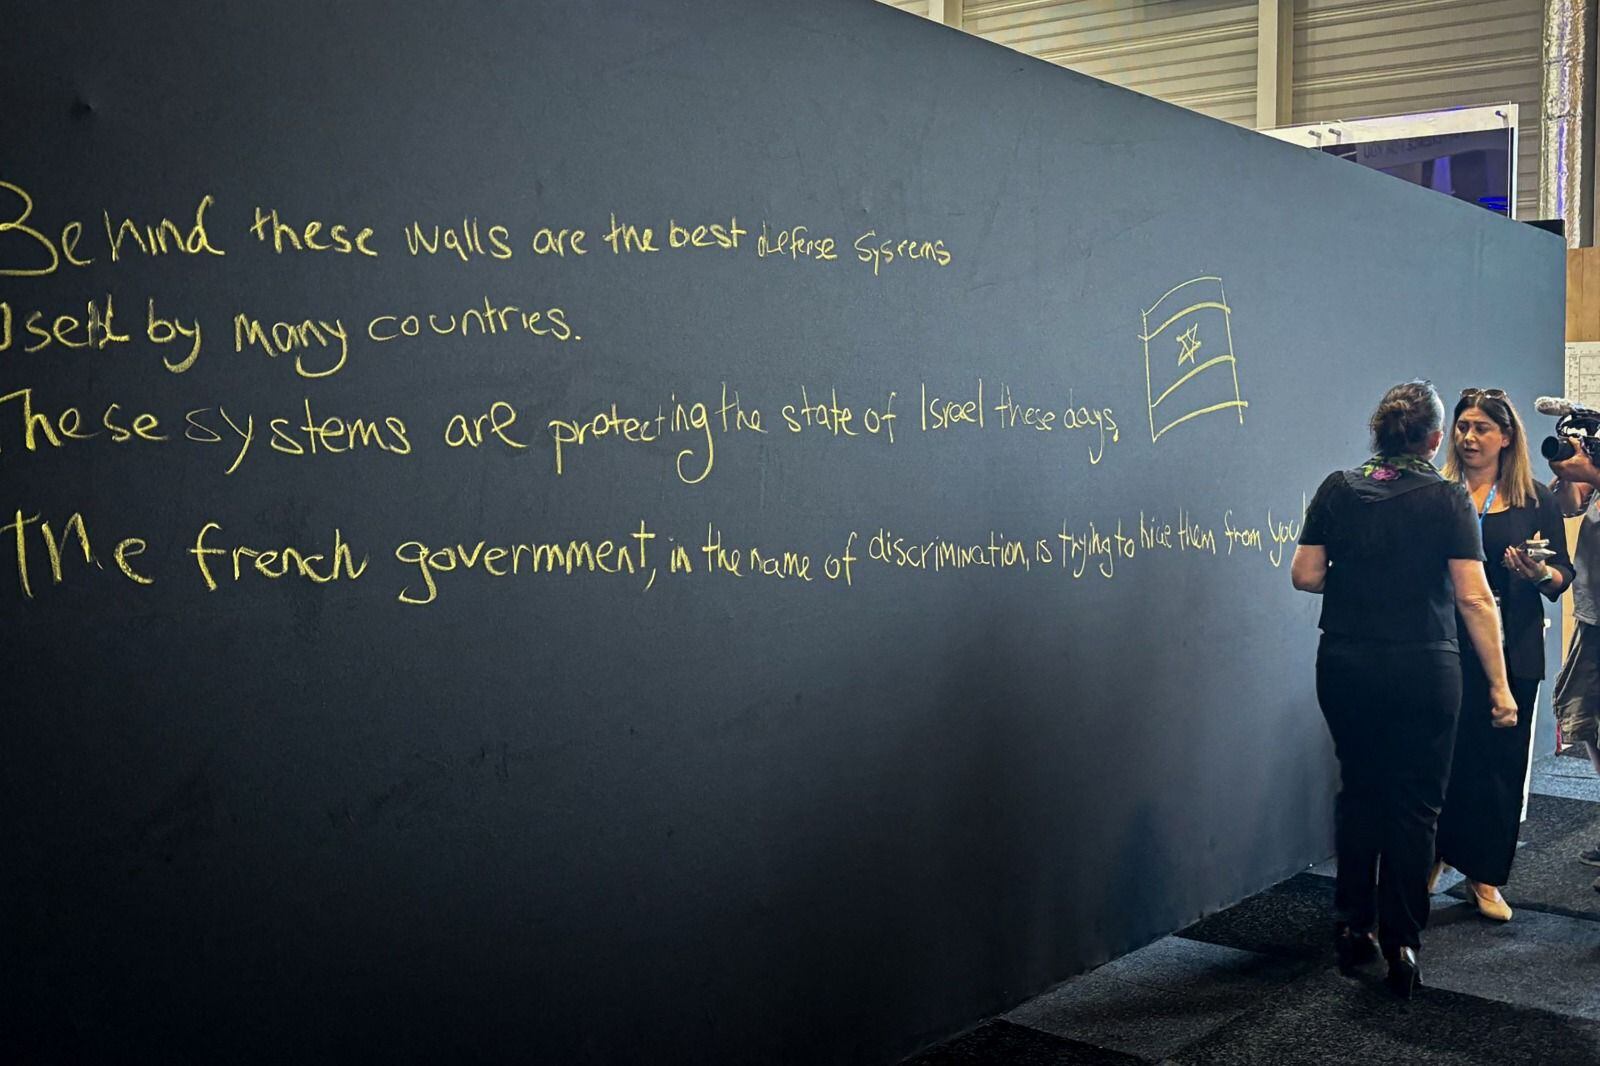 Behind these walls are the best defense systems
Used by many countries.
These systems are protecting the state of Israel these days,
The french government, in the name of discrimination, is trying to hide them from you!